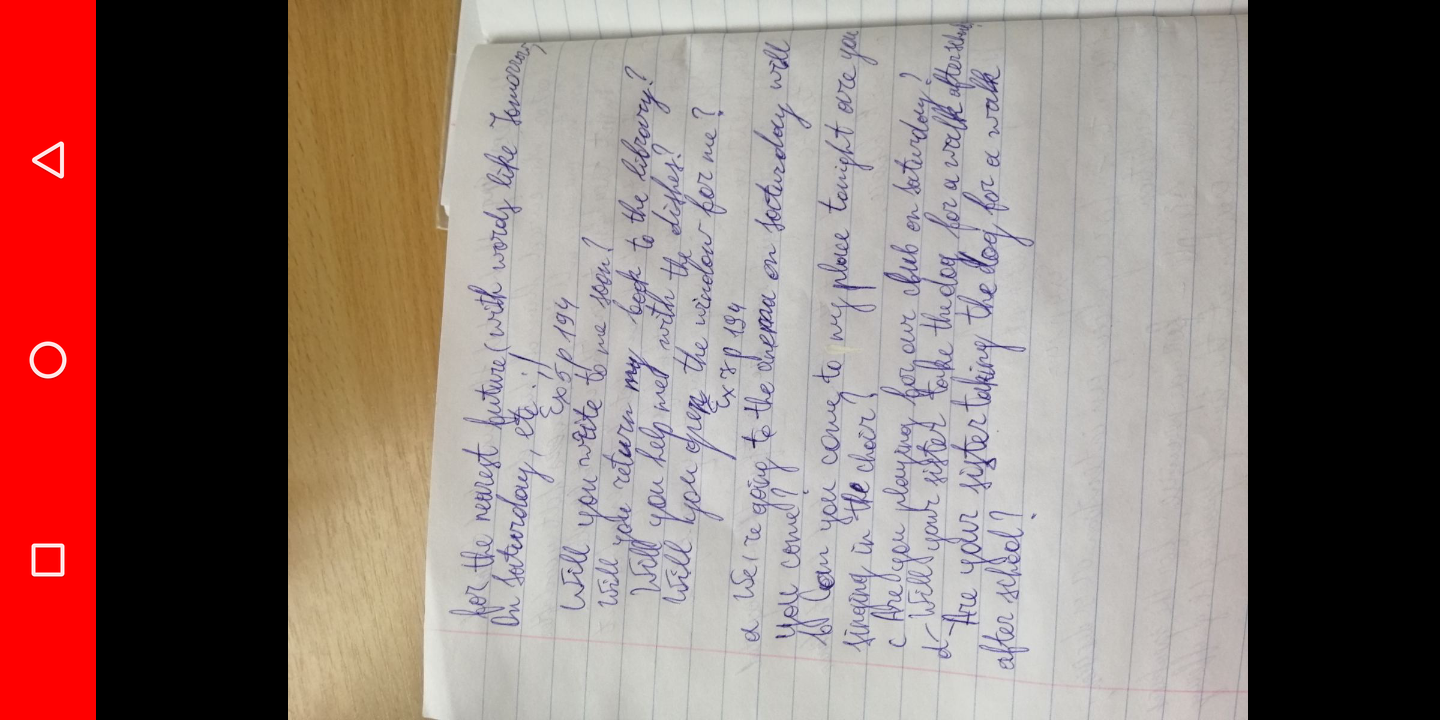 for the nearest future (with words like tomorrow,
on saturday, etc.!!
Ex 5 p 194
Will you write to me soon?
Will you return my book to the library?
Will you help me with the dishes?
Will you open the window for me?
Ex 7 p 194
a We're going to the on saturday will
you come?
b Can you come to my place tonight are you
singing in the choir?
c Are you playing for our club on saturday?
d - Will your sister take the dog for a walk after school
- Are your sister taking the dog for a walk
after school?